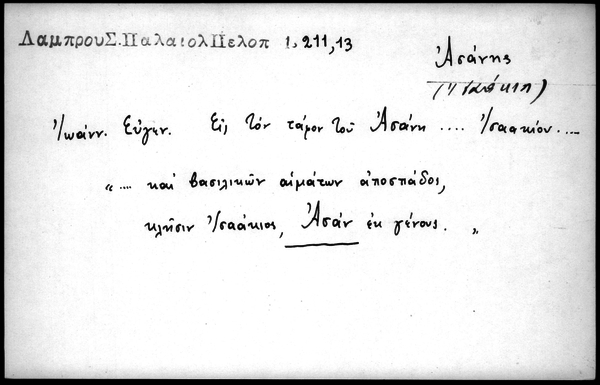 ΛαμπρουΣ.ΠαλαιολΠελοπ 1, 211, 13
Ἀσάνης
Ἰωάνν. Εὐγεν. Εἰς τὸν τάφον τοῦ Ἀσάνη .... Ἰσαακίου ....
"... καὶ βασιλικῶν αἱμάτων ἀποσπάδος,
κλῆσιν Ἰσαάκιος, Ἀσὰν ἐκ γένους. "